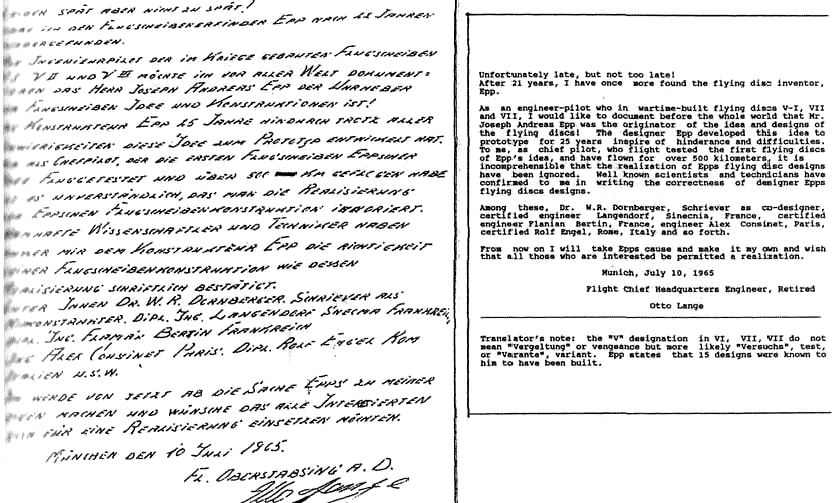 SPÄT ABER NICHT ZU SPÄT!
ICH DEN FLUGSCHEIBENERFINDER EPP NACH 25 JAHREN
INGENIEURPILOT DER IM KRIEGE GEBAUTEN FLUGSCHEIBEN
V II UND V III MÖCHTE ICH VOR ALLER WELT DOKUMENT=
DAS HERR JOSEPH ANDREAS EPP DER URHEBER
FLUGSCHEIBEN IDEE UND KONSTRUKTIONEN IST!
KONSTRUKTEUR EPP 25 JAHRE HINDURCH TROTZ ALLER
DIESE IDEE ZUM PROTOTYP ENTWICKELT HAT.
ALS CHEFPILOT, DER DIE ERSTEN FLUGSCHEIBEN EPPSCHER
FLUGGETESTET UND ÜBER 500 KM GEFLOGEN HABE
UNVERSTÄNDLICH, DAS MAN DIE REALISIERUNG
EPPSCHEN FLUGSCHEIBENKONSTRUKTION IGNORIERT.
WISSENSCHAFTLER UND TECHNIKER HABEN
MIR DEM KONSTRUKTEUR EPP DIE RICHTIGKEIT
FLUGSCHEIBENKONSTRUKTION WIE DESSEN
SCHRIFTLICH BESTÄTIGT.
IHNEN DR. W. R. DORNBERGER. SCHRIEVER ALS
DIPL. ING. LANGENDORF SNECMA
ING. FLAMAN BERTIN FRANKREICH
ING ALEX CONSINET PARIS. DIPL. ROLF ENGEL ROM
U.S.W.
WERDE VON JETZT AB DIE SACHE EPPS ZU MEINER
MACHEN UND WÜNSCHE DAS ALLE
FÜR EINE REALISIERUNG EINSETZEN MÖCHTEN.
MÜNCHEN DEN 10 JULI 1965.
FL. OBERSTABSING A. D.
Unfortunately late, but not too late!
After 21 years, I have once more found the flying disc inventor,
Epp.
As an engineer-pilot who in wartime-built flying discs V-I, VII
and VII, I would like to document before the whole world that Mr.
Joseph Andreas Epp was the originator of the idea and designs of
the flying discs! The designer Epp developed this idea to
prototype for 25 years inspire of hinderance and difficulties.
To me, as chief pilot, who flight tested the first flying discs
of Epp's idea, and have flown for over 500 kilometers, it is
incomprehensible that the realization of Epps flying disc designs
have been ignored. Well known scientists and technicians have
confirmed to me in writing the correctness of designer Epps
flying discs designs.
Among these, Dr. W.R. Dornberger, Schriever as co-designer,
certified engineer Langendorf, Sinecnia, France, certified
engineer Flanian Bertin, France, engineer Alex Consinet, Paris,
certified Rolf Engel, Rome, Italy and so forth.
From now on I will take Epps cause and make it my own and wish
that all those who are interested be permitted a realization.
Munich, July 10, 1965
Flight Chief Headquarters Engineer, Retired
Otto Lange
Translator's note: the "V" designation in VI, VII, VII do not
mean "Vergeltung" or vengeance but more likely "Versuchs", test,
or "Varante", variant. Epp states that 15 designs were known to
him to have been built.